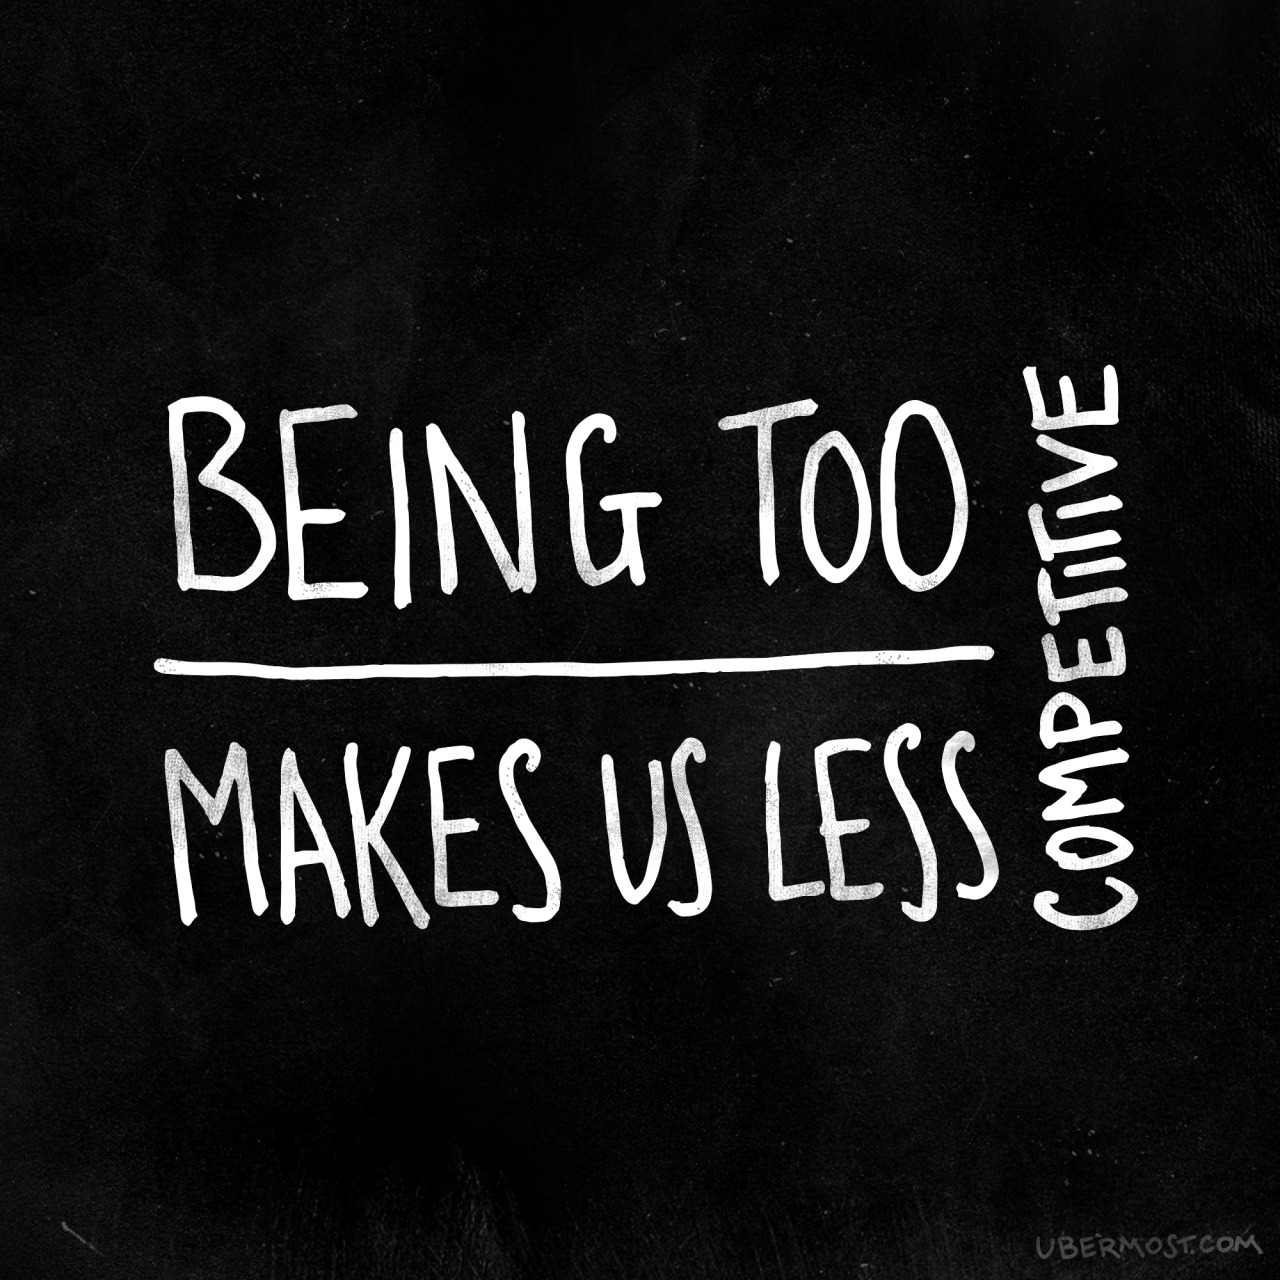 BEING TOO
MAKES US LESS
COMPETITIVE
UBERMOST.COM